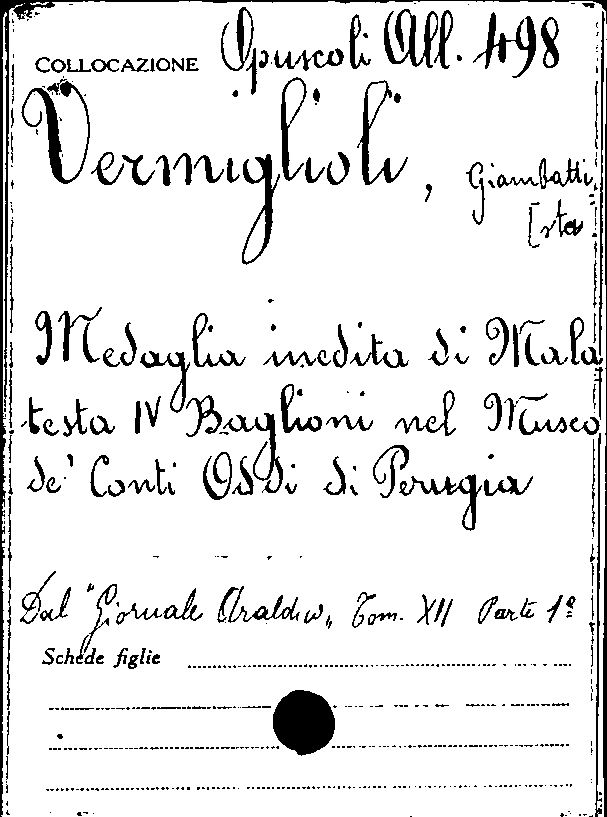 COLLOCAZIONE Opuscoli All. 498
Vermiglioli, Giambatti
[sta
Medaglia inedita di Mala
testa IV Baglioni nel Museo
de' Conti Oddi di Perugia
Dal "Giornale Araldico" Tom. XII Parte 1ª
Schede figlie